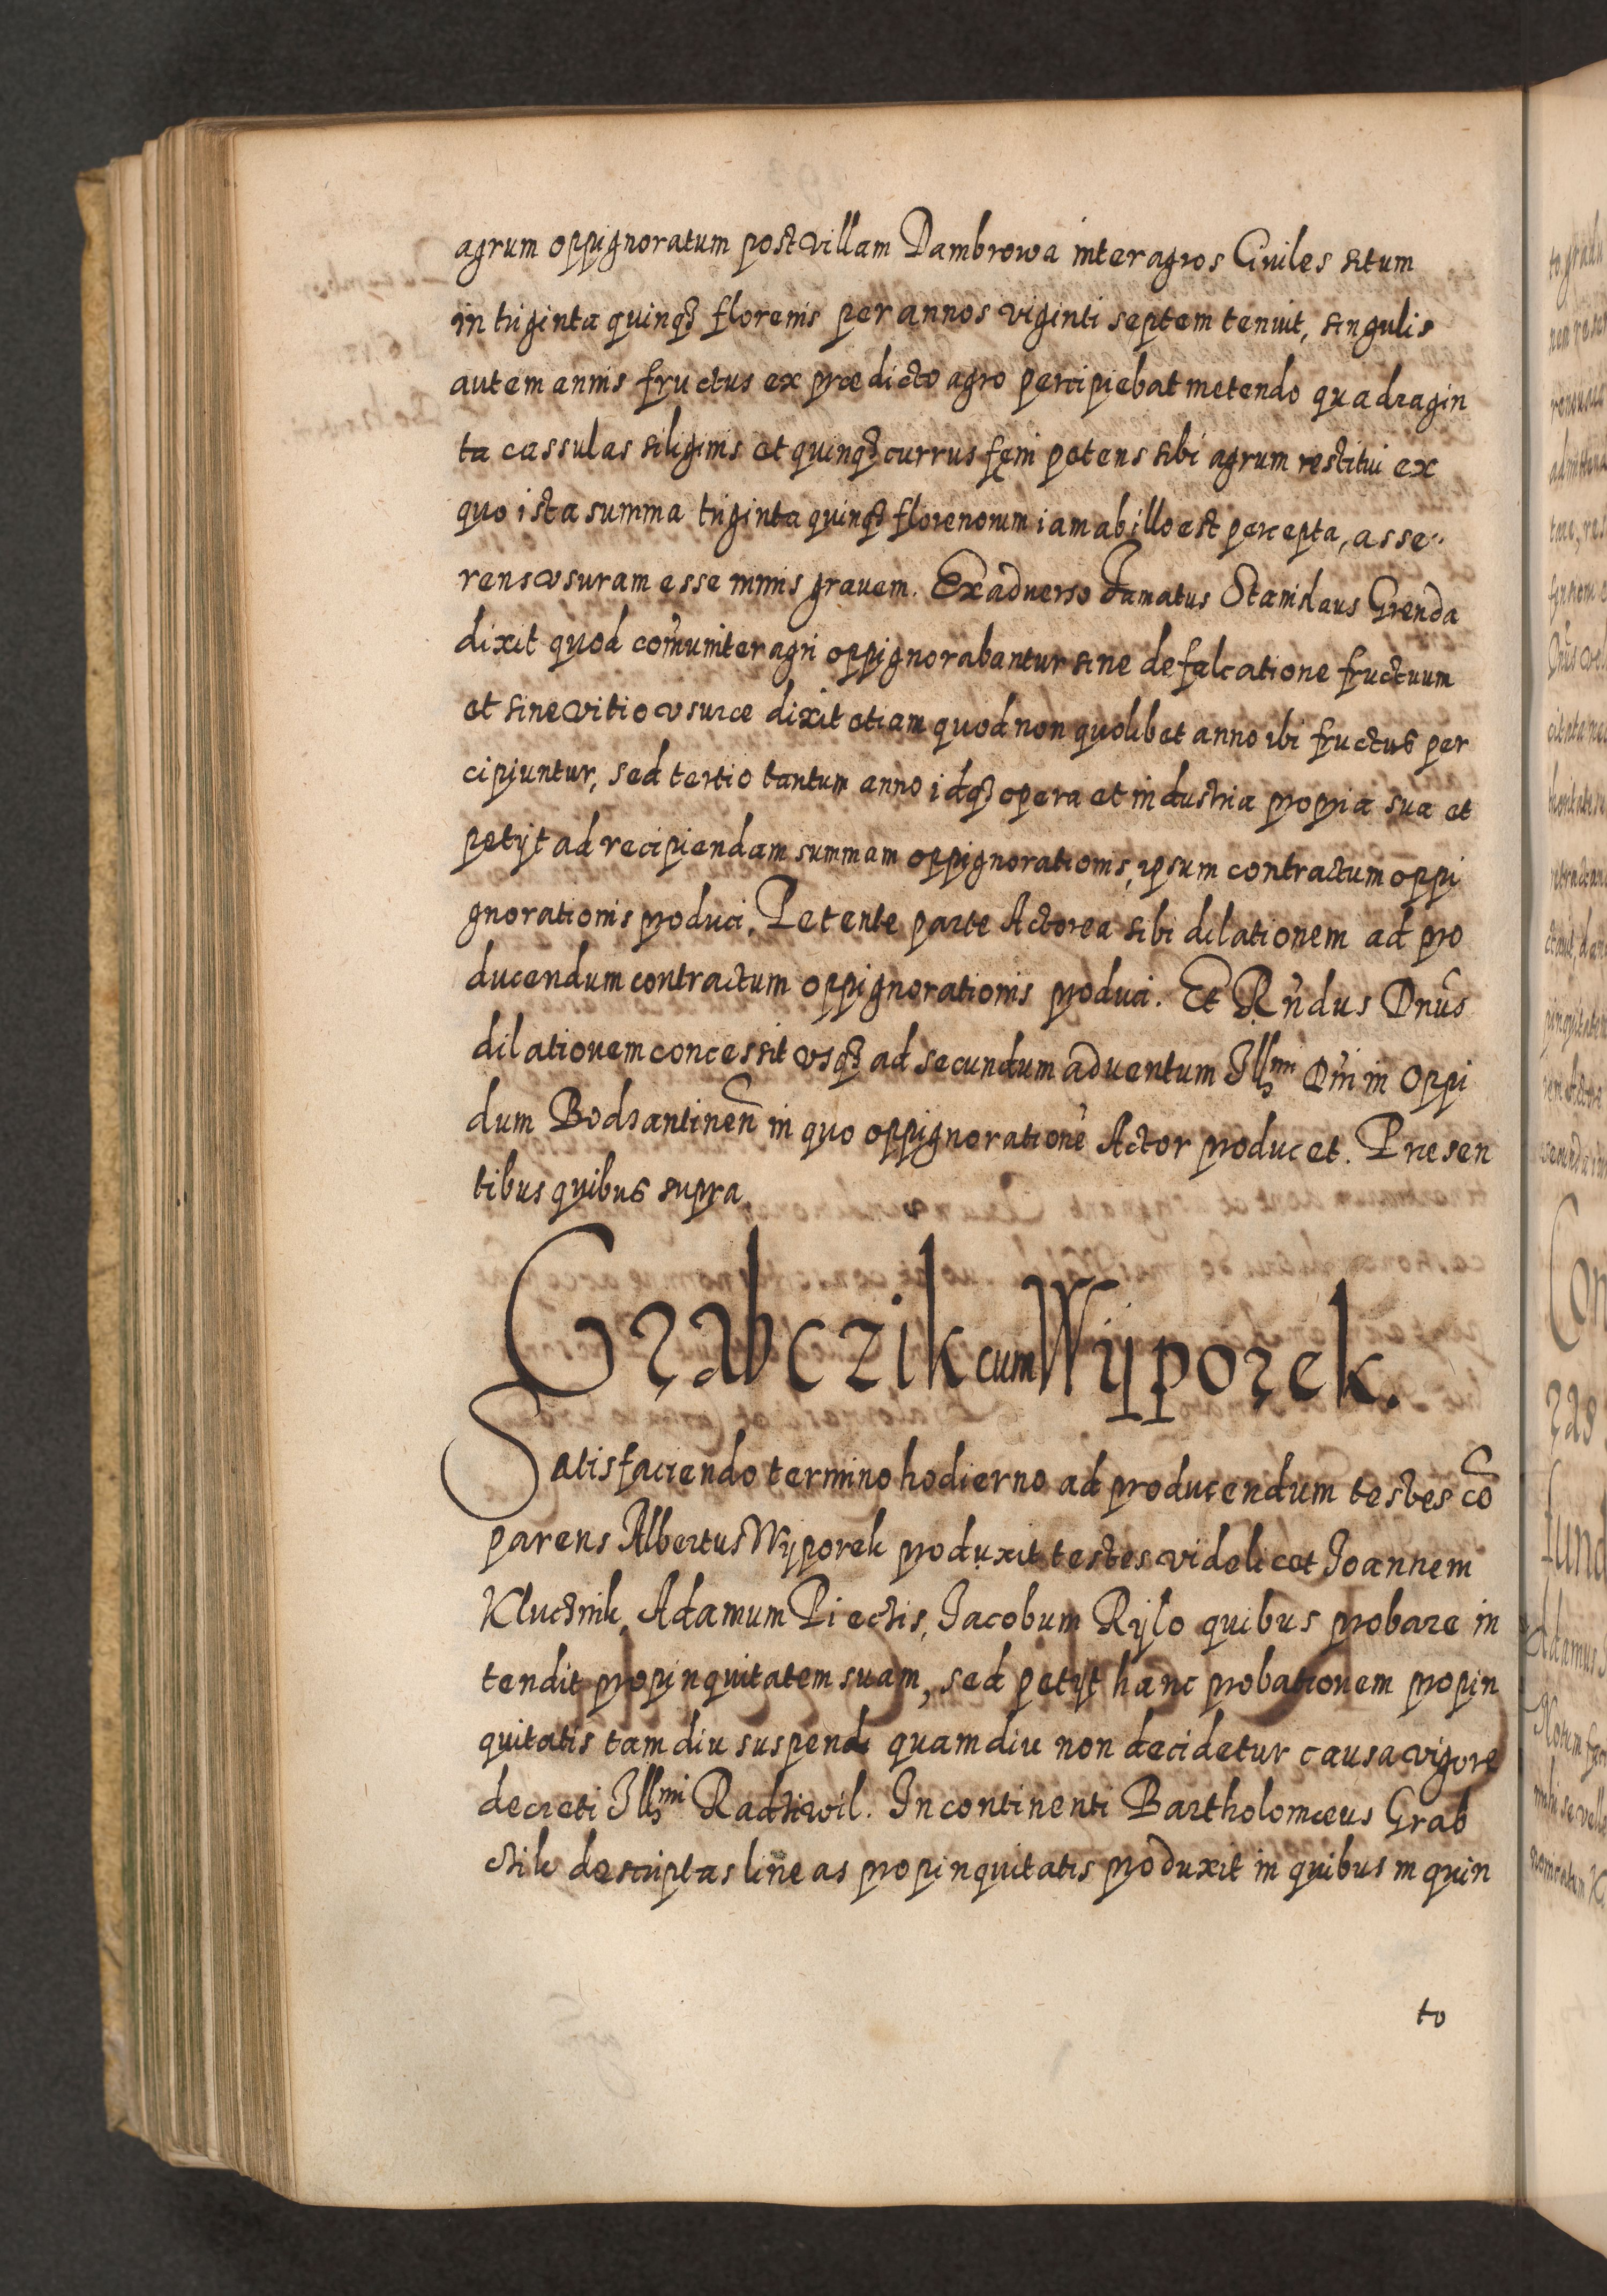 agrum oppignoratum post villam Dambrowa inter agros Ciuiles situm
in triginta quinqȝ florenis per annos viginti septem tenuit, singulis
autem annis fructus ex prædicto agro percipiebat metendo quadragin
ta cassulas siliginis et quinqȝ currus fęni petens sibi agrum restitui ex
quo ista summa triginta quinqȝ florenorum iam ab illo est percepta, asse
rens vsuram esse nimis grauem. Ex aduerso Famatus Stanislaus Grenda
dixit quod com̃uniter agri oppignorabantur sine defalcatione fructuum
et sine vitio vsuræ dixit etiam quod non quolibet anno ibi fructus per
cipiuntur, sed tertio tantum anno idqȝ opera et industria propria sua et
petijt ad recipiendam summam oppignorationis, ipsum contractum oppi
gnorationis produci. Petente parte Actorea sibi dilationem ad pro
ducendum contractum oppignorationis produci. Et Rñdus Dnũs
dilationem concessit vsqȝ ad secundum aduentum Illmi Dñi in Oppi
dum Bodzantineñ in quo oppignorationẽ Actor producet. Præsen
tibus quibus supra
Grabczik cum Wijporek.
Satisfaciendo termino hodierno ad producendum testes cõ
parens Albertus Wijporek produxit testes videlicet Joannem
Kluctnik, Adamum Piectis, Jacobum Rijlo quibus probare in
tendit propinquitatem suam, sed petijt hanc probationem propin
quitatis tam diu suspendi quamdiu non decidetur causa vigore
decreti Illmi Radziwil. In continenti Bartholomæus Grab
czik descriptas lineas propinquitatis produxit in quibus in quin
to